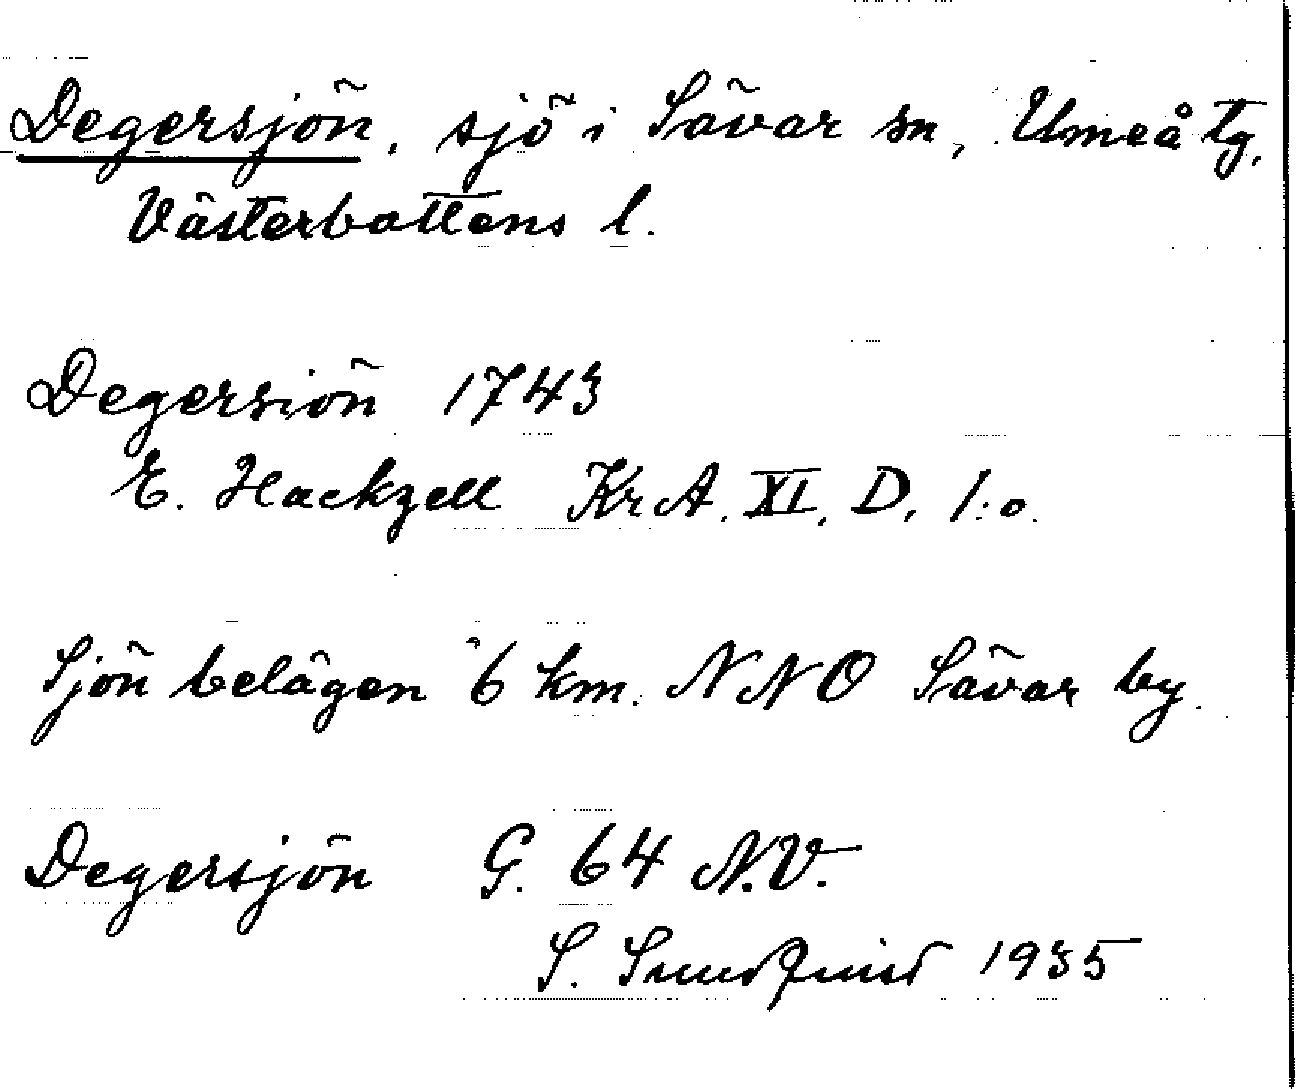 Degersjön, sjö i Sävar sn, Umeå tg,
Västerbottens l.
Degersiön 1743
E. Hackzell KrA. XI, D, 1:o.
Sjön belägen 6 km. NNO Sävar by.
Degersjön G. 64 N.V.
S. Sundquist 1935